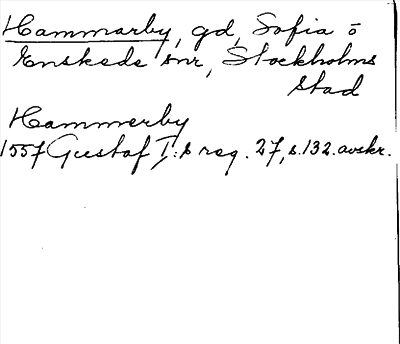 Hammarby, gd, Sofia o
Enskede snr, Stockholms
stad
Hammerby
1557 Gustaf I:s reg. 27, s. 132. avskr.